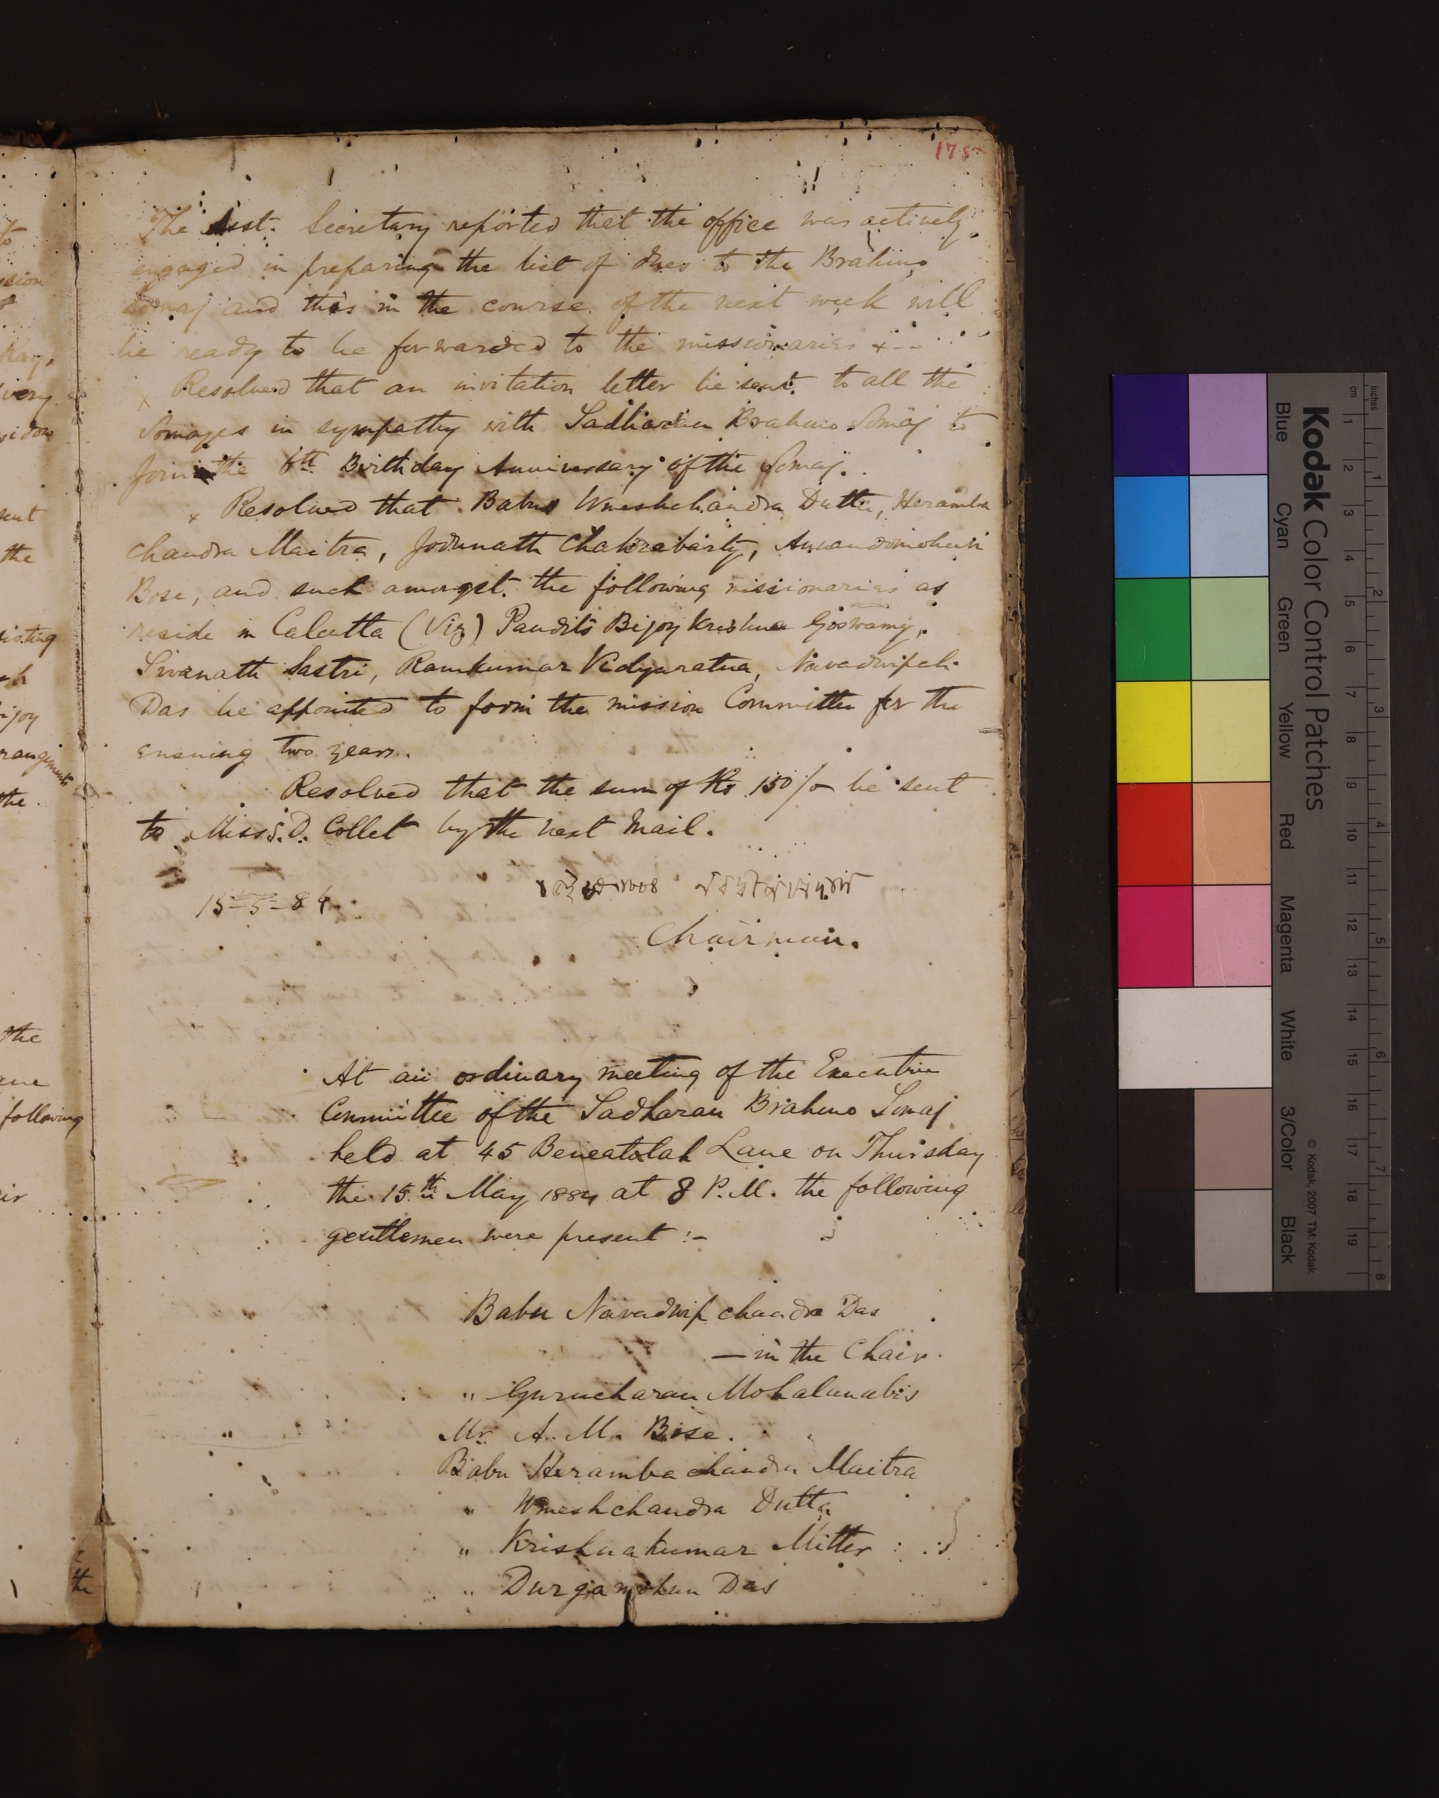 175
The Asst. Secretary reported that the office was actively
engaged in preparing the list of dues to the Brahmo
Somaj and this in the course of the next week will
be ready to be forwarded to the missionaries
x Resolved that an invitation letter be sent to all the
Somajes in sympathy with Sadharan Brahmo Somaj to
Join the 6th Birthday Anniversary of the Somaj.
x Resolved that Babus Umeshchandra Dutta, Heramba
chandra Maitra, Jodunath Chakrabarty, Anandamohun
Bose, and such amongst the following missionaries as
reside in Calcutta (Viz) Pandits Bijoy Krishna Goswamy,
Sivanath Sastri, Ramkumar Vidyaratna, Navadwipch.
Das be appointed to form the mission Committee for the
ensuing two years.
Resolved that the sum of Rs 150/- be sent
to Miss S. D. Collet by the next Mail.
15-5-84
Chairman.
At an ordinary meeting of the Executive
Committee of the Sadharan Brahmo Somaj
held at 45 Beneatolah Lane on Thursday
the 15th May 1884 at 8 P.M. the following
gentlemen were present :-
Babu Navadwip chandra Das
— in the Chair.
" Gurucharan Mohalanabis
Mr. A. M. Bose.
Babu Heramba chandra Maitra
" Umeshchandra Dutta
" Krishnakumar Mitter
" Durgamohun Das
Kodak Color Control Patches
Blue Cyan Green Yellow Red Magenta White 3/Color Black
© Kodak, 2007 TM: Kodak
inches 1 2 3 4 5 6 7 8
cm 1 2 3 4 5 6 7 8 9 10 11 12 13 14 15 16 17 18 19